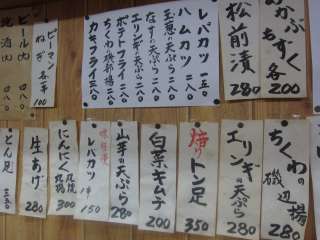 めかぶ
もずく
各200
松前漬
280
レバカツ 一五〇
ハムカツ 二八〇
玉葱の天ぷら 二八〇
なすの天ぷら 二八〇
エリンギの天ぷら 二八〇
ポテトフライ 二八〇
ちくわ磯部揚 二八〇
カキフライ 三八〇
ピーマン
ねぎ 各羊100
ちくわの磯辺揚
280
エリンギの天ぷら
280
トン足
350
白菜キムチ
200
山羊の天ぷら
280
レバカツ
1本150
にんにく
300
生あげ
280
とん足
三五〇